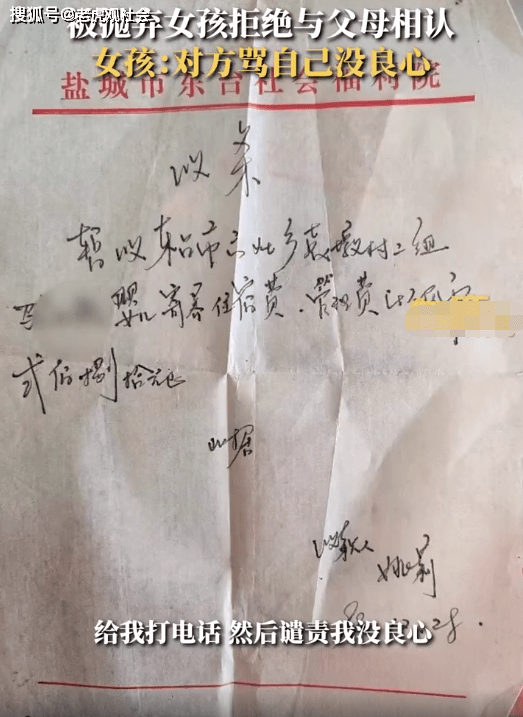 搜狐号@老虎观社会
被抛弃女孩拒绝与父母相认
女孩:对方骂自己没良心
盐城市东台社会福利院
收条
暂收东台市
婴儿寄养住宿费、管理费
贰佰捌拾元
此据
收款人
姚莉
给我打电话 然后谴责我没良心